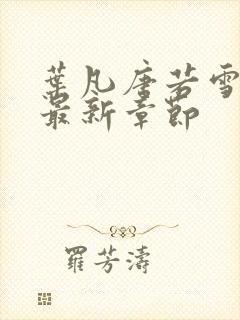 葉凡唐若雪
最新章節
羅芳濤